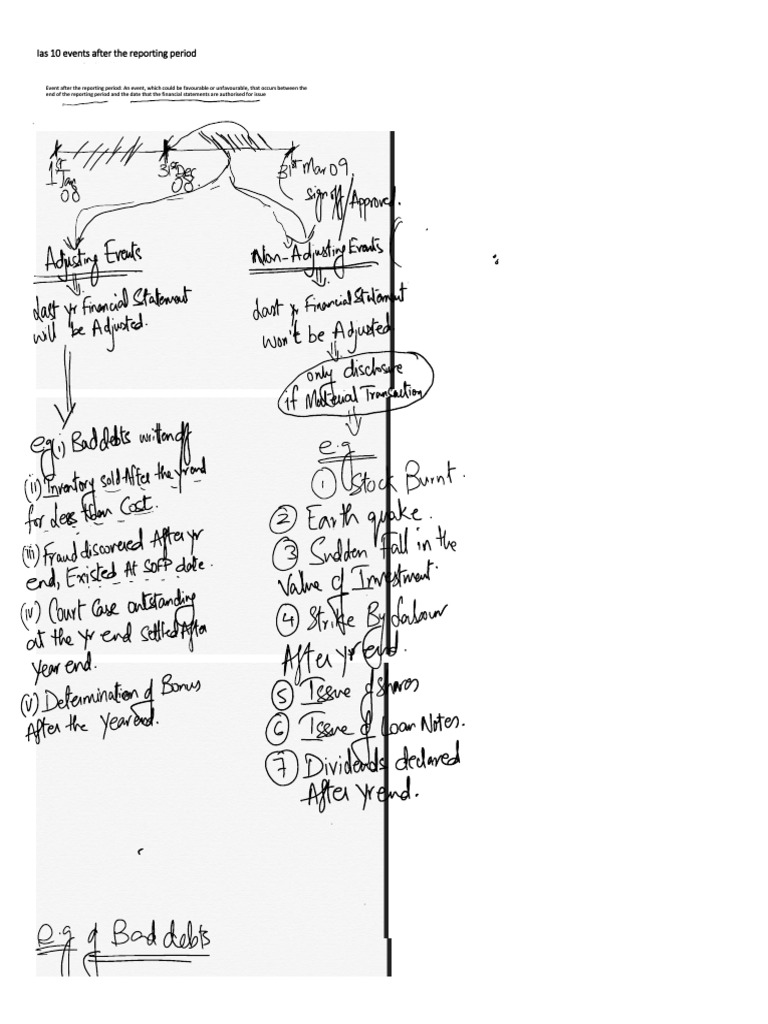 Ias 10 events after the reporting period
Event after the reporting period: An event, which could be favourable or unfavourable, that occurs between the
end of the reporting period and the date that the financial statements are authorised for issue
1st
Jan
08
31st
Dec
08
31st Mar 09
sign off/Approved.
Adjusting Events
Last yr Financial Statement
will be Adjusted.
e.g (i) Bad debts written off
(ii) Inventory sold After the yr end
for Less than Cost.
(iii) Fraud discovered After yr
end, Existed At SOFP date.
(iv) Court Case outstanding
at the yr end settled After
year end.
(v) Determination of Bonus
After the Year end.
Non-Adjusting Events
Last yr Financial Statement
won't be Adjusted
only disclosure
if Material Transaction
e.g
① Stock Burnt.
② Earth quake.
③ Sudden Fall in the
Value of Investment.
④ Strike By Labour
After Yr end.
⑤ Issue of Shares
⑥ Issue of Loan Notes.
⑦ Dividends declared
After Yr end.
e.g of Bad debts